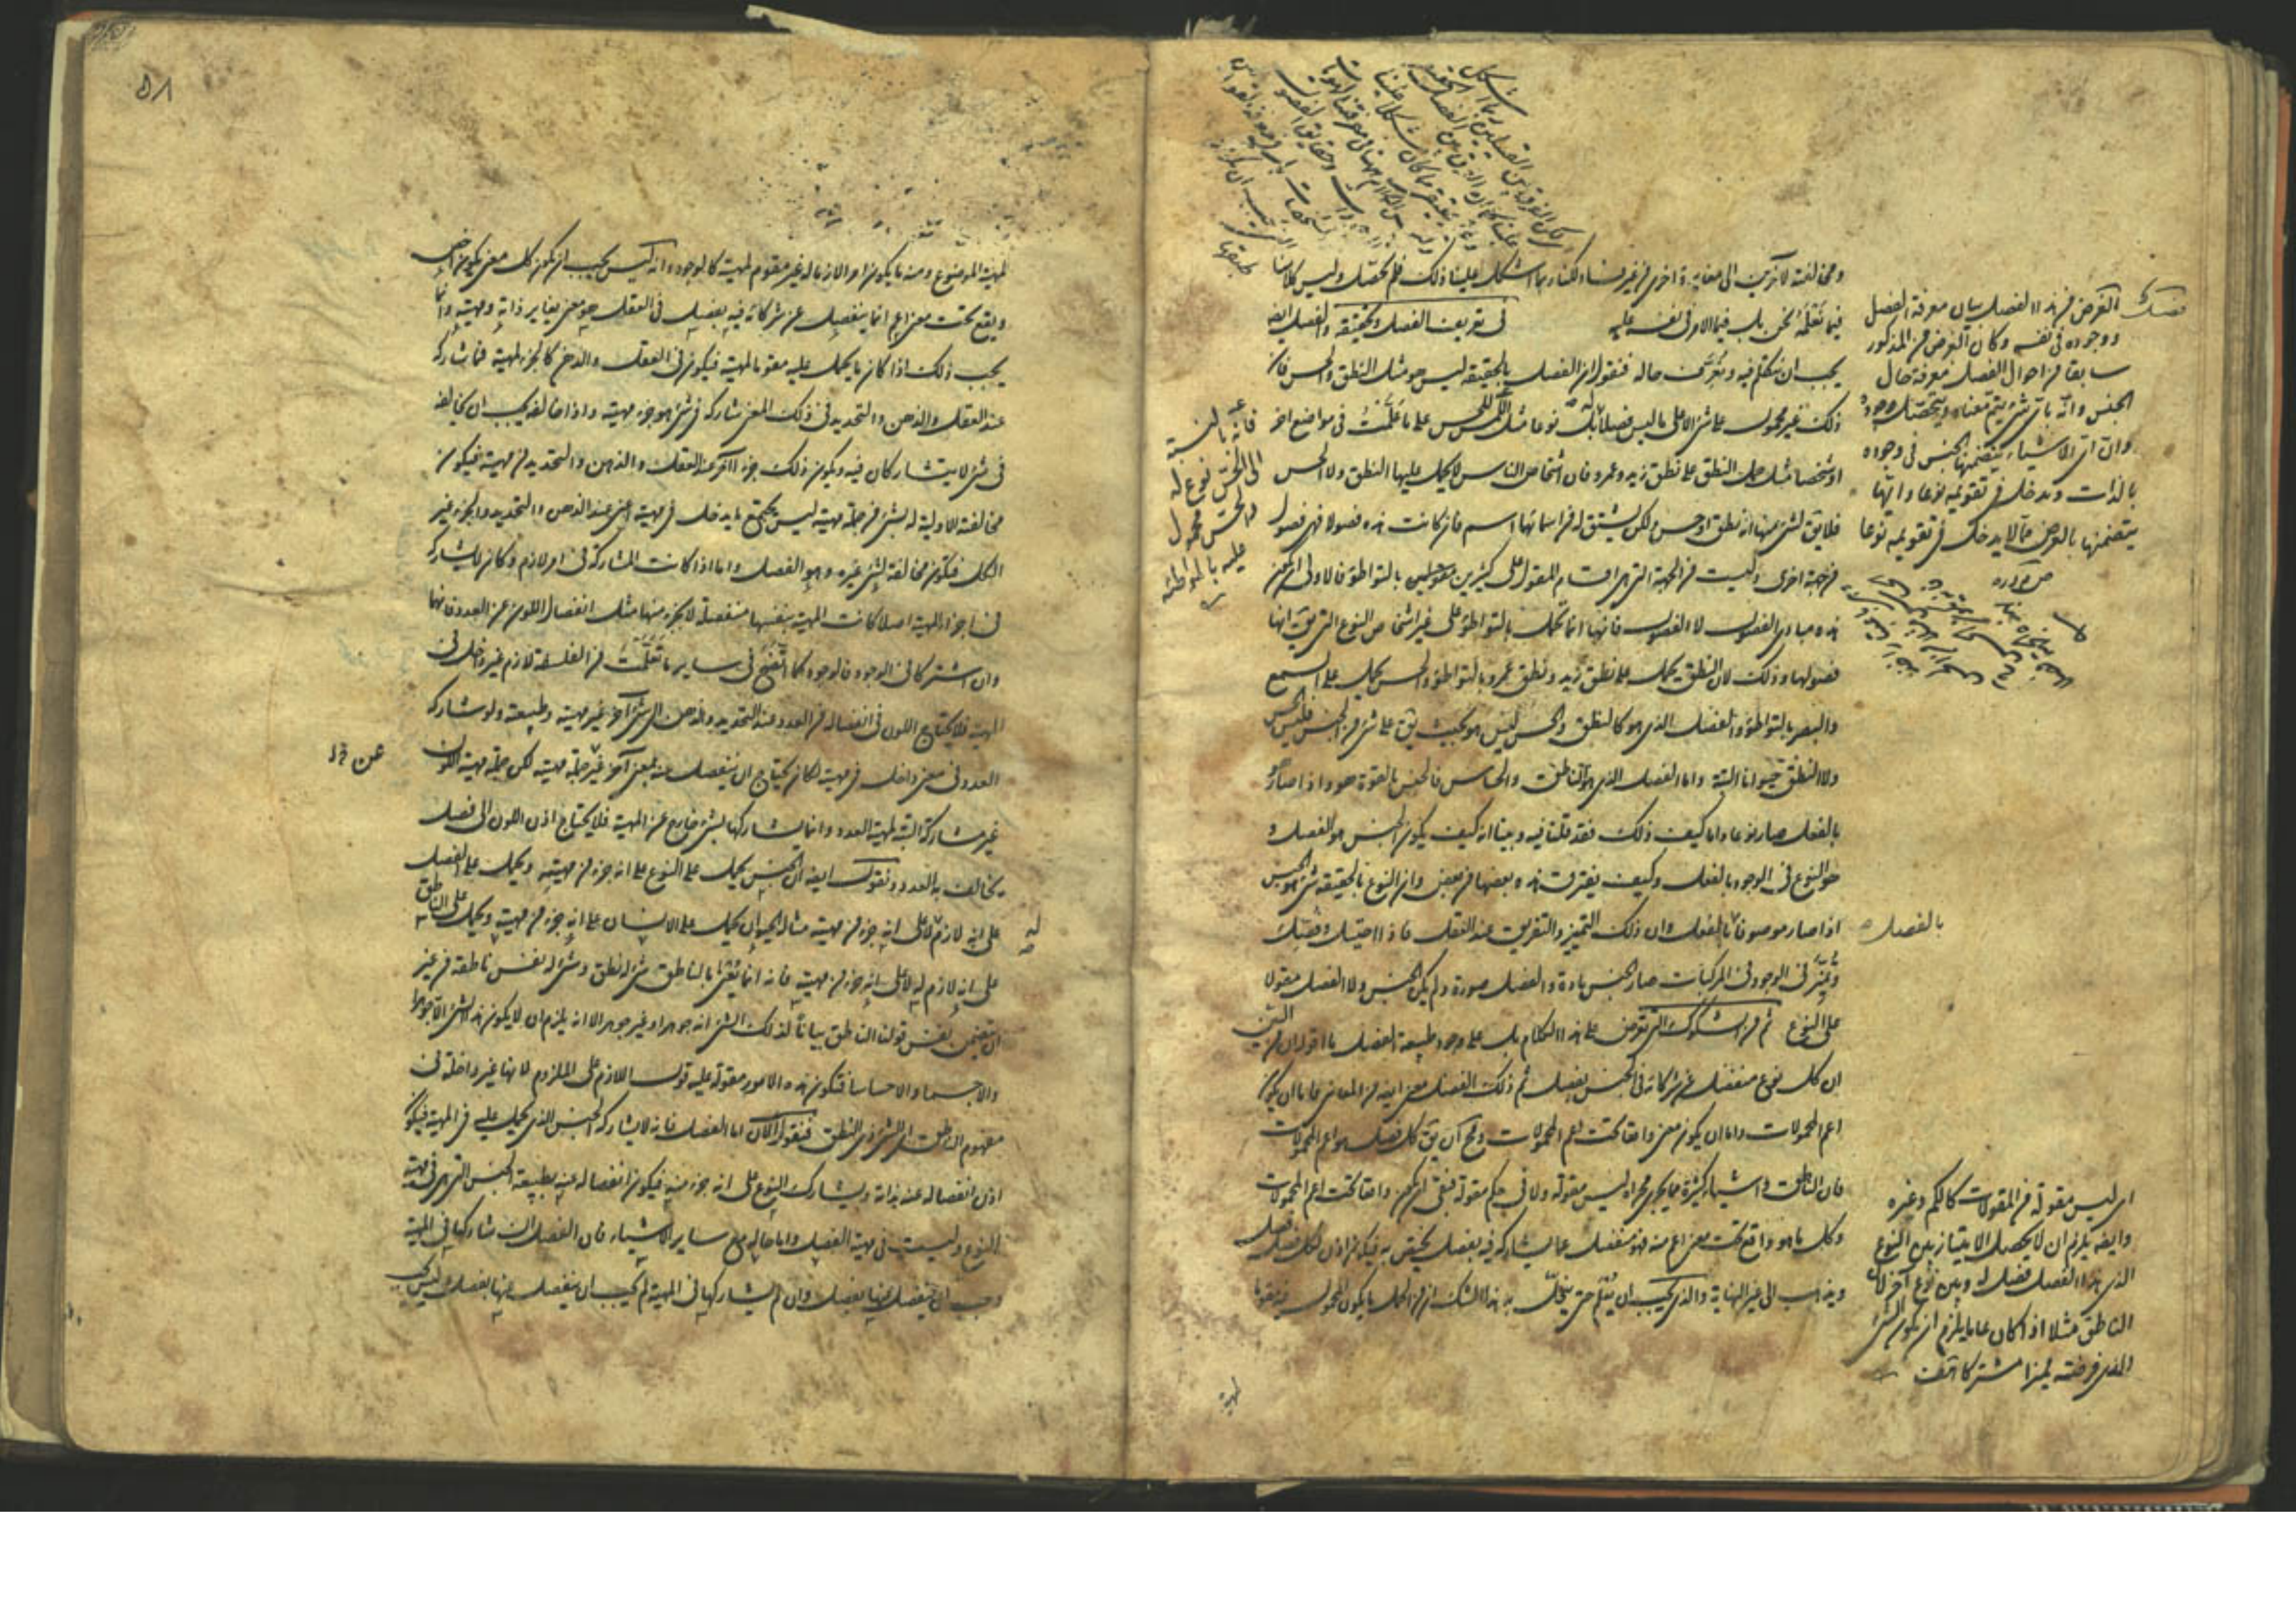 ومخالفة لآخرين الى مغايرة اخرى من غير نساد لكنا ربما اشكل علينا ذلك فلم نحصله وليس كلامنا
فيما نعلمه نحن بل فيما الامر فى نفسه عليه فى تعريف الفصل وتحقيقه والفصل ايضا
يجب ان نتكلم فيه ونعرف حاله فنقول ان الفصل بالحقيقة ليس هو مثل النطق والحس فان
ذلك غير محمول على شئ الا على ما ليس فصلا له بل نوعا مثل اللمس للحس على ما علمت فى مواضع اخر
او شخصا مثل حمل النطق على نطق زيد وعمرو فان اشخاص الناس لا يحمل عليها النطق ولا الحس
فلا يق لشئ منها انه نطق او حس ولكن يشتق له من اسمائها اسم فان كانت هذه فصولا فهى فصول
من جهة اخرى وليست من الجهة التى هى اقسام المقول على كثيرين بالتواطؤ فالاولى ان يكون
هذه مبادى الفصول لا الفصول فانها انما تحمل بالتواطؤ على غير اشخاص النوع التى يق انها
فصولها وذلك لان النطق يحمل على نطق زيد ونطق عمرو بالتواطؤ والحس يحمل على السمع
والبصر بالتواطؤ والفصل الذى هو كالنطق والحس ليس هو بحيث يق على شئ من الجنس فليس الحس
ولا النطق حيوانا البتة واما الفصل الذى هو الناطق والحساس فالجنس بالقوة هو واذا صار هو
بالفعل صار نوعا واما كيف ذلك فقد قلنا فيه وبينا انه كيف يكون الجنس هو الفصل و
هو النوع فى الوجود بالفعل وكيف يفترق هذه بعضها من بعض وان النوع بالحقيقة شئ هو الجنس
اذا صار موصوفا بالفعل وان ذلك التمييز والتفريق عند العقل فاذا احتيل وفصل
وميز فى الوجود فى المركبات صار الجنس مادة والفصل صورة ولم يكن الجنس ولا الفصل مقولا
على النوع ثم من الشكوك التى تعرض على هذا الكلام بل على وجود طبيعة الفصل ما اقوله ان من البين
ان كل نوع منفصل عن شركائه فى الجنس بفصل ثم ذلك الفصل معنى ايضا من المعانى فاما ان يكون
اعم المحمولات واما ان يكون معنى واقعا تحت اعم المحمولات ومح ان يق كل فصل هو اعم المحمولات
فان الناطق واشياء كثيرة مما يجرى مجراه ليس مقولة ولا فى حكم مقولة فبقى ان يكون واقعا تحت اعم المحمولات
وكل ما هو واقع تحت معنى اعم منه فهو منفصل عما يشاركه فيه بفصل يختص به فيكون اذن لكل فصل فصل
ويذهب الى غير النهاية والذى يجب ان يعلم حتى ينحل به هذا الشك ان من الحمل ما يكون المحمول فيه مقوما
فصل
الغرض من هذا الفصل بيان معرفة الفصل
ووجوده فى نفسه وكان الغرض من المذكور
سابقا من احوال الفصل معرفة حال
الجنس وانه باى شئ يتم معناه ويتحصل وجوده
وان اى الاشياء يتضمنها الجنس فى وجوده
بالذات ويدخل فى تقويمه نوعا وايها
يتضمنها بالعرض مما لا يدخل فى تقويمه نوعا
فانه بالنسبة
الى الحس نوع له
والحس محمول
عليه بالمواطاة
بالفصل
اى ليس مقولة من المقولات كالكم وغيره
وايضا يلزم ان لا يحصل الامتياز بين النوع
الذى هذا الفصل فصل له وبين نوع آخر لان
الناطق مثلا اذا كان عاما يلزم ان يكون الشئ
الذى فرضته مميزا مشتركا هف
۵۸
لمهية الموضوع ومنه ما يكون امرا لازما له غير مقوم لمهية كالوجود وانه ليس يجب ان يكون كل معنى يكون اخص
ويقع تحت معنى اعم انما ينفصل عن شركائه فيه بفصل فى العقل هو معنى يغاير ذاته ومهيته وانما
يجب ذلك اذا كان ما يحمل عليه مقوما لمهيته فيكون فى العقل والذهن كالجزء لمهيته فما يشاركه
عند العقل والذهن والتحديد فى ذلك المعنى شاركه فى شئ هو جزء مهيته واذا خالفه يجب ان يخالفه
فى شئ لا يتشاركان فيه ويكون ذلك جزء آخر عند العقل والذهن والتحديد من مهيته فيكون
مخالفته الاولية له بشئ من جملة مهيته ليس بجميع ما يدخل فى مهيته اعنى عند الذهن والتحديد والجزء غير
الكل فيكون مخالفته لشئ غيره وهو الفصل واما اذا كانت المشاركة فى امر لازم وكان لا يشاركه
فى اجزاء المهية اصلا كانت المهية بنفسها منفصلة لا بجزء منها مثل انفصال اللون عن العدد فانهما
وان اشتركا فى الوجود فالوجود كما اتضح فى ساير ما تعلمت من الفلسفة لازم غير داخل فى
المهية فلا يحتاج اللون فى انفصاله من العدد عند التحديد والذهن الى شئ آخر غير مهيته وطبيعته ولو شاركه
العدد فى معنى داخل فى مهيته لكان يحتاج ان ينفصل عنه بمعنى آخر غير جملة مهيته لكن جملة مهية اللون
غير مشاركة البتة لمهية العدد وانما يشاركها بشئ خارج عن المهية فلا يحتاج اذن اللون الى فصل
يخالف به العدد ونقول ايضا ان الجنس يحمل على النوع على انه جزء من مهيته ويحمل على الفصل
على انه لازم له لا على انه جزء من مهيته مثاله الحيوان يحمل على الانسان على انه جزء من مهيته ويحمل على الناطق
على انه لازم له لا على انه جزء من مهيته فانه انما يعنى بالناطق شئ له نطق وشئ له نفس ناطقة من غير
ان يتضمن نفس قولنا الناطق بيانا لذلك الشئ انه جوهر او غير جوهر الا انه يلزم ان لا يكون هذا الشئ الا جوهرا
والا جسما والا حساسا فتكون هذه الامور مقولة عليه قول اللازم على الملزوم لانها غير داخلة فى
مفهوم الناطق اى الشئ ذى النطق فنقول الآن اما الفصل فانه لا يشاركه الجنس الذى يحمل عليه فى المهية فيكون
اذن انفصاله عنه بذاته ويشارك النوع على انه جزء منه فيكون انفصاله عنه بطبيعة الجنس التى هى فى مهية
النوع وليست فى مهية الفصل واما حاله مع ساير الاشياء فان الفصل ان شاركها فى المهية
وجب ان ينفصل عنها بفصل وان لم يشاركها فى المهية لم يجب ان ينفصل عنها بفصل وليس يجب